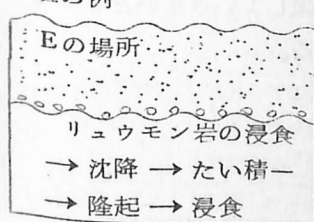 の例
Eの場所
リュウモン岩の浸食
→ 沈降 → たい積 ―
→ 隆起 → 浸食